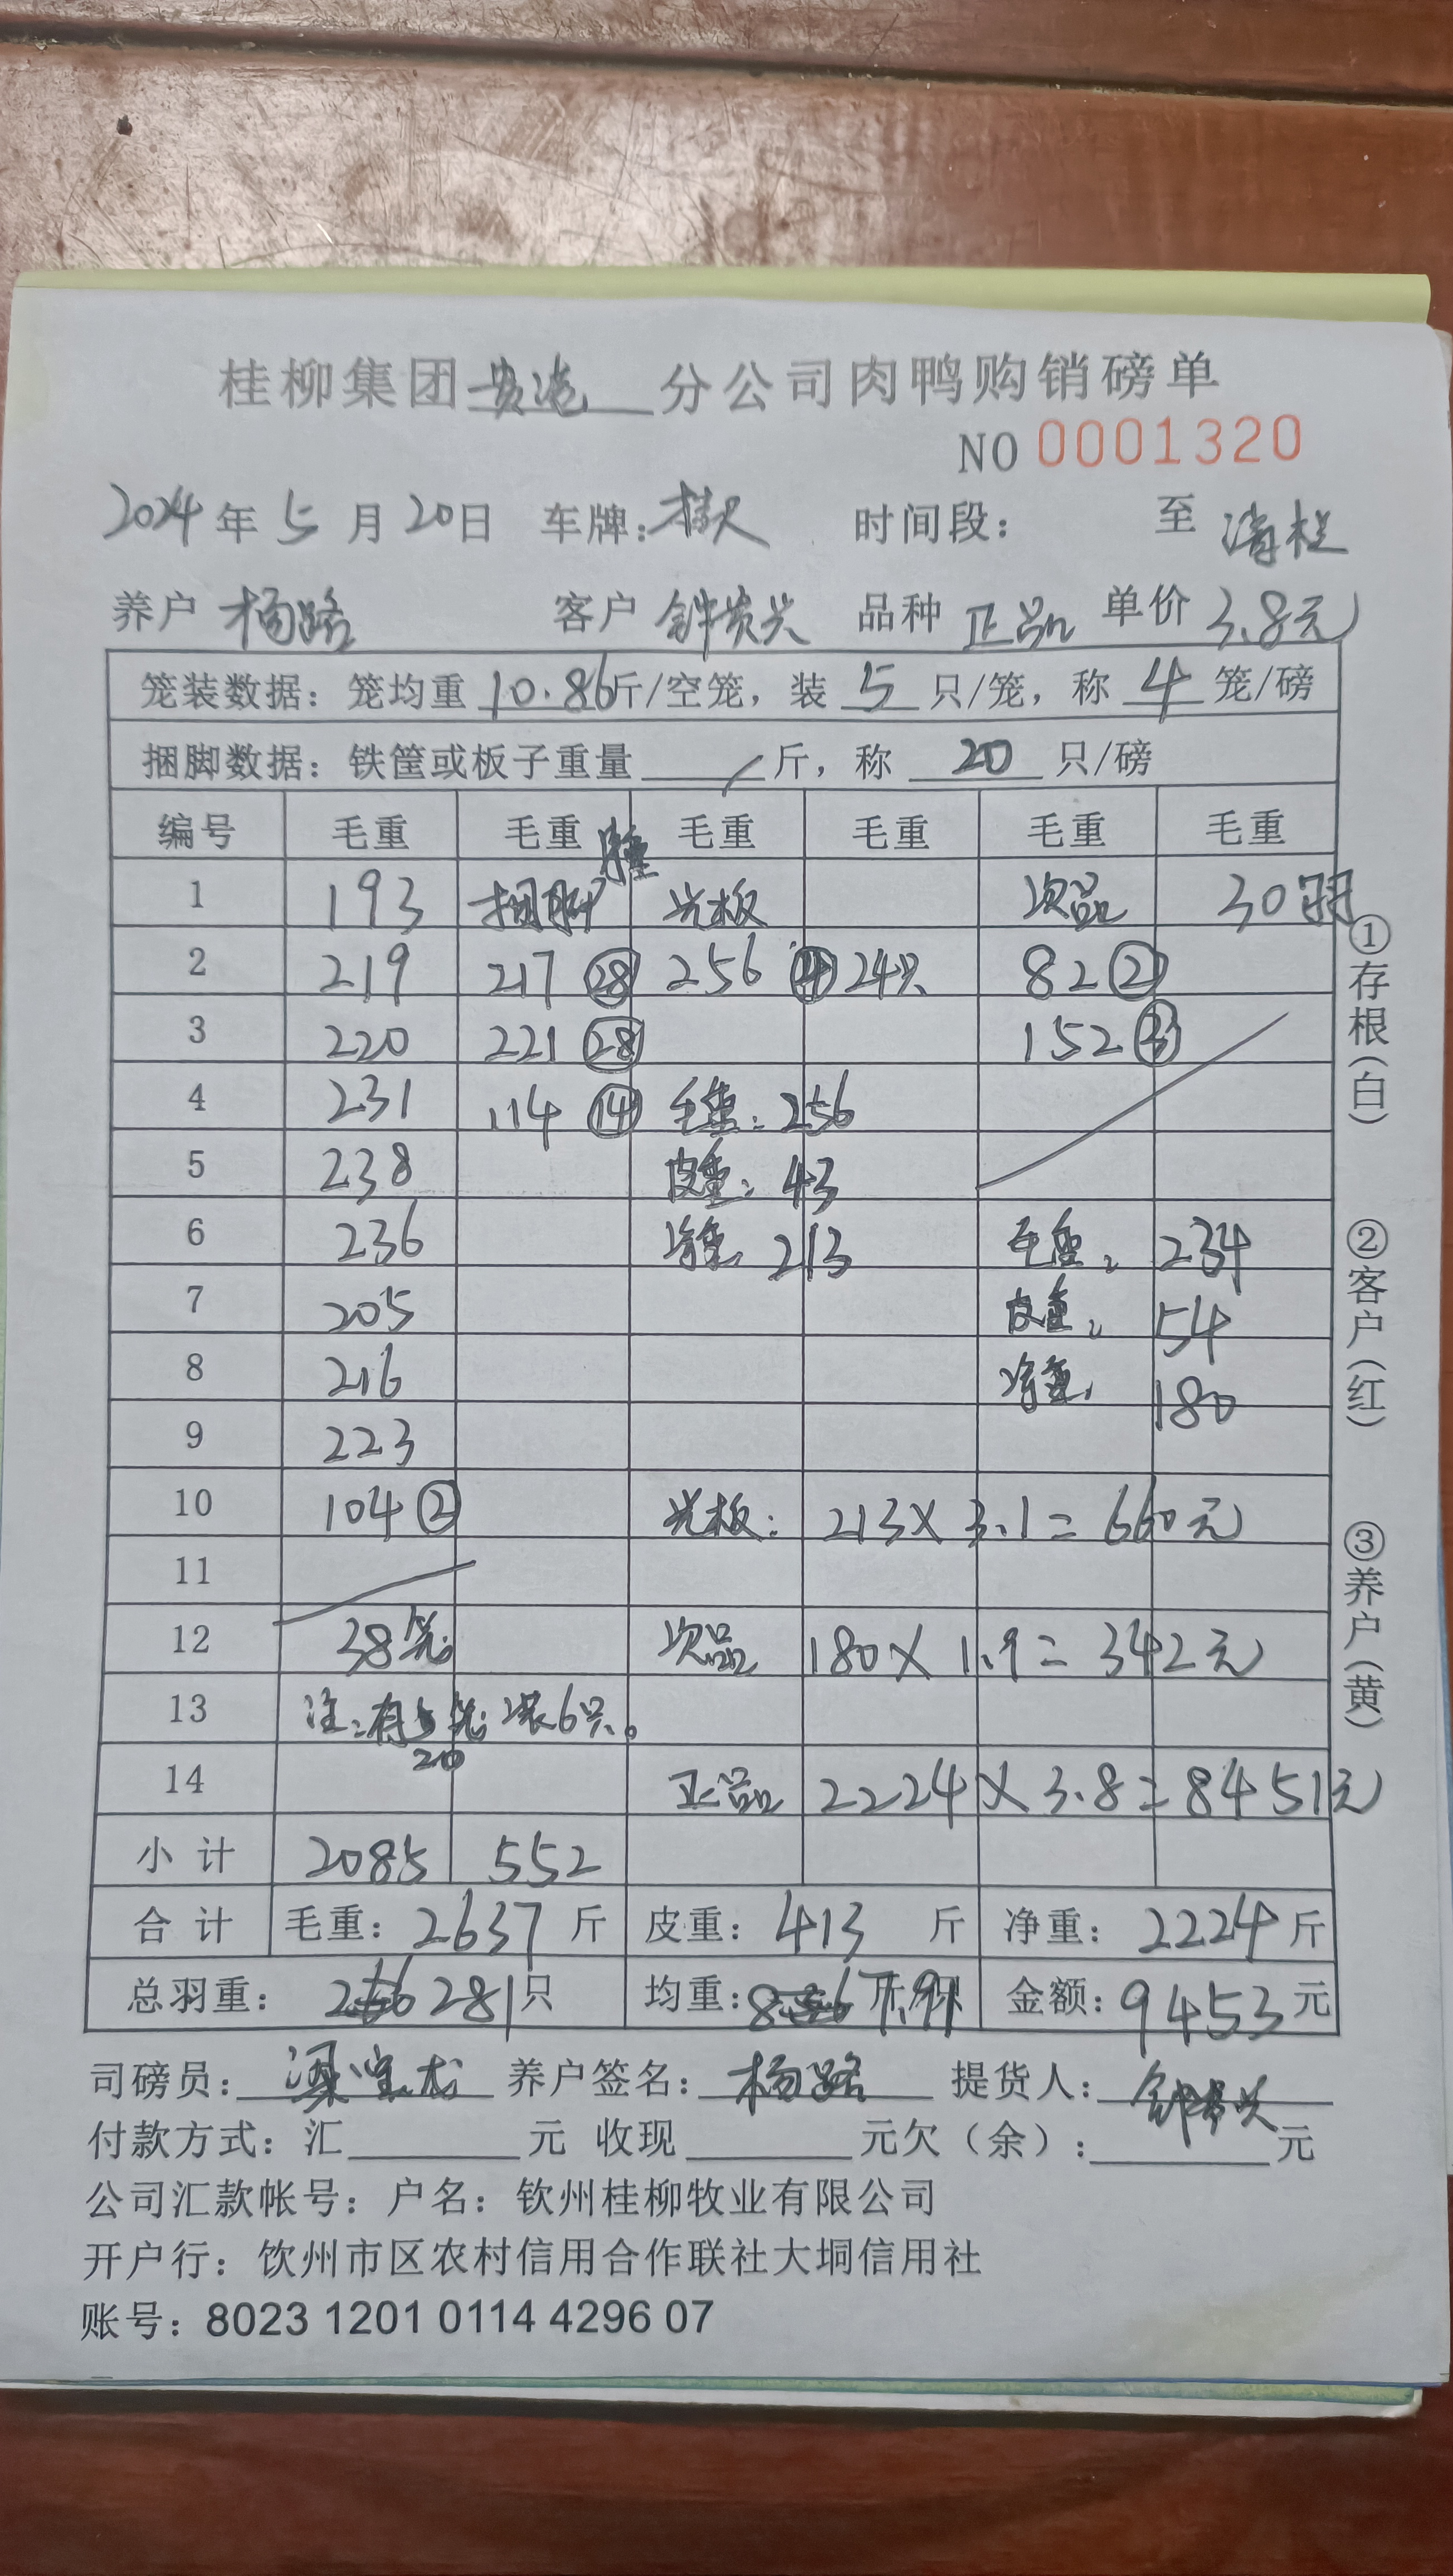 桂柳集团 贵港 分公司肉鸭购销磅单
NO 0001320
2024 年 5 月 20 日 车牌: 时间段: 至 清栏
养户 杨路 客户 钟贵兴 品种 正品 单价 3.8元
笼装数据: 笼均重 10.86 斤/空笼, 装 5 只/笼, 称 4 笼/磅
捆脚数据: 铁筐或板子重量 / 斤, 称 20 只/磅
编号 毛重 毛重 毛重 毛重 毛重 毛重
1 193 捆脚 净重 光板 次品 30羽
2 219 217 ㉘ 256 24只 82 ②
3 220 221 ㉘ 152 ③
4 231 114 ⑭ 毛重: 256
5 238 皮重: 43
6 236 净重: 213 毛重: 234
7 205 皮重: 54
8 216 净重: 180
9 223
10 104 ② 光板: 213 × 3.1 = 660元
11
12 38笼 次品 180 × 1.9 = 342元
13 注: 有 笼装6只。
20
14 正品 2224 × 3.8 = 8451元
小计 2085 552
合计 毛重: 2637 斤 皮重: 413 斤 净重: 2224 斤
总羽重: 281 只 均重: 7.91 金额: 9453 元
司磅员: 养户签名: 杨路 提货人: 钟贵兴
付款方式: 汇 元 收现 元欠(余): 元
公司汇款帐号: 户名: 钦州桂柳牧业有限公司
开户行: 饮州市区农村信用合作联社大垌信用社
账号: 8023 1201 0114 4296 07
①存根(白) ②客户(红) ③养户(黄)